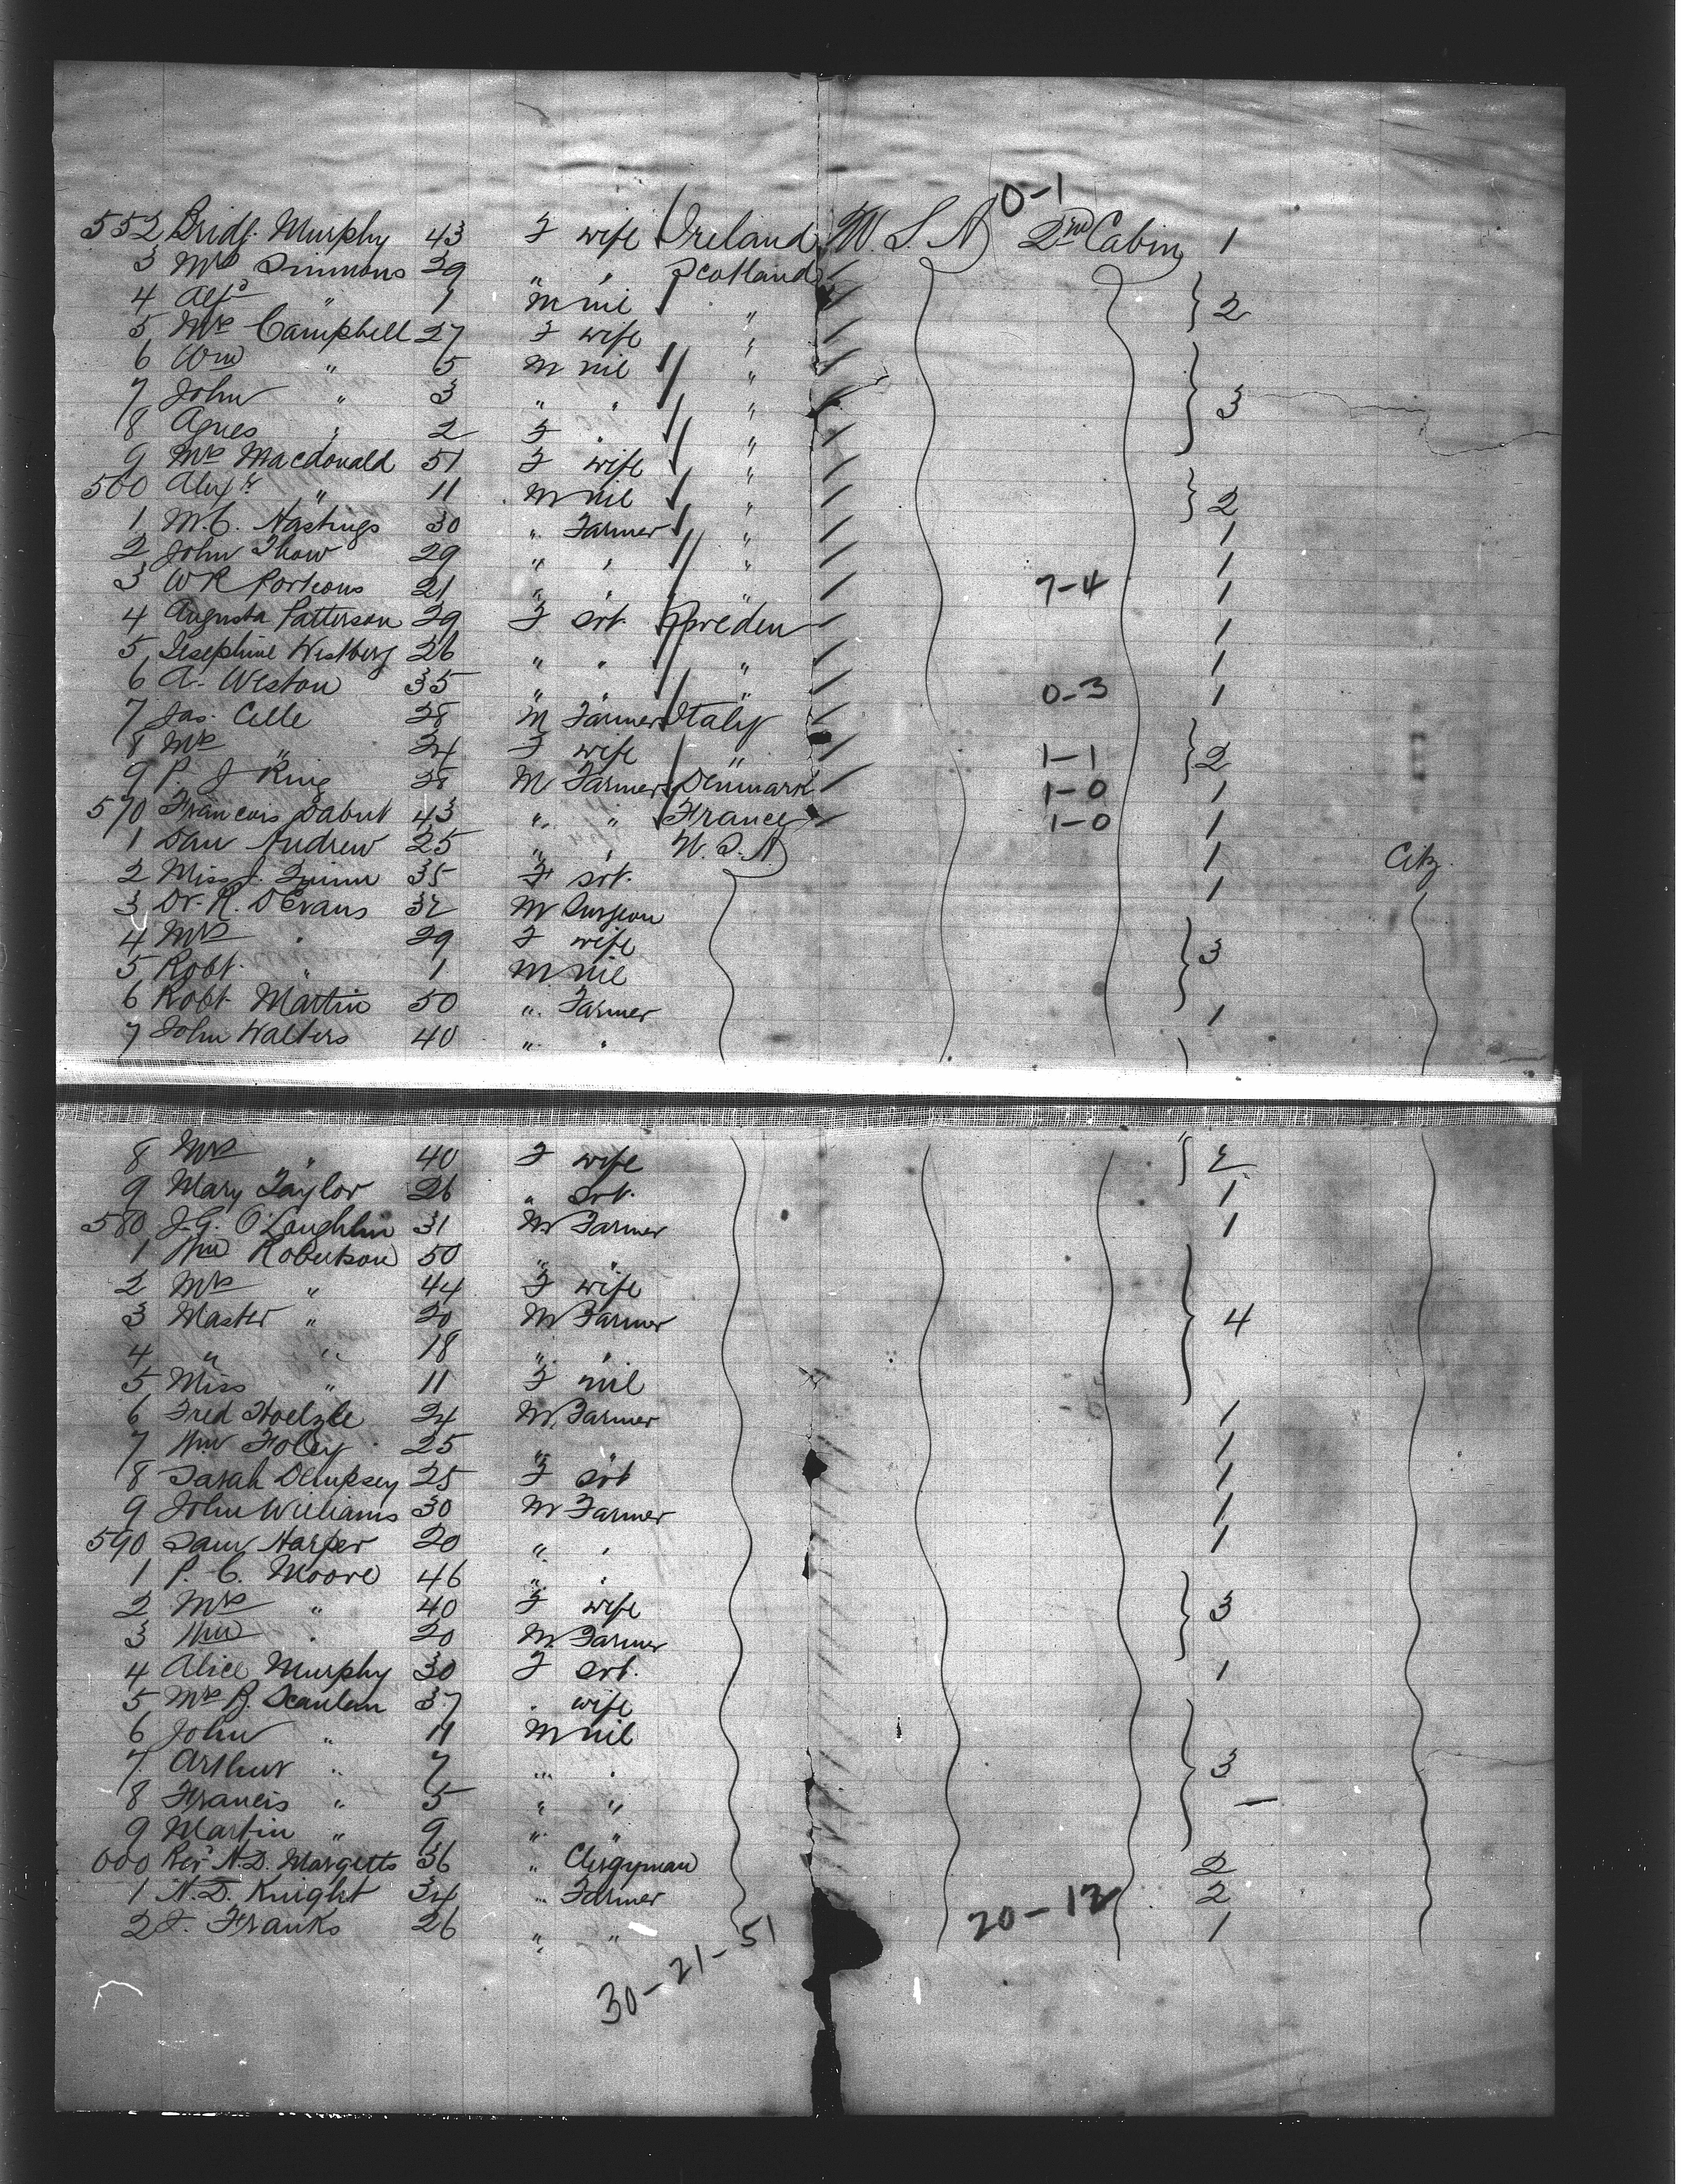 0-1
552 Bridt. Murphy 43 F wife Ireland U.S.A 2nd Cabin 1
3 Mrs Simmons 29 " " Scotland
4 Alfd " 1 M nil " 2
5 Mrs Campbell 27 F wife "
6 Wm " 5 M nil "
7 John " 3 " " " 3
8 Agnes " 2 F " "
9 Mrs Macdonald 51 F wife "
560 Alexr " 11 M nil " 2
1 M.C. Hastings 30 " Farmer " 1
2 John Thow 29 " " " 1
3 W R Porteous 21 " " " 7-4 1
4 Augusta Patterson 29 F srt. Sweden 1
5 Josephine Westberg 26 " " " 1
6 A. Weston 35 " " " 0-3 1
7 Jas. Celle 28 M Farmer Italy
8 Mrs " 24 F wife " 1-1 2
9 P. J King 28 M Farmer Denmark 1-0 1
570 Francois Dabut 43 " " France 1-0 1
1 Dan Andrew 25 " " U.S.A 1 Citz.
2 Miss J. Quinn 35 F srt. 1
3 Dr. R. D Evans 32 M Surgeon
4 Mrs " 29 F wife 3
5 Robt. " 1 M nil
6 Robt. Martin 50 " Farmer 1
7 John Walters 40 " "
8 Mrs " 40 F wife 2
9 Mary Taylor 26 " srt. 1
580 J.G. O'Loughlin 31 M Farmer 1
1 Wm Robertson 50 " "
2 Mrs " 44 F wife
3 Master " 20 M Farmer 4
4 " " 18 " "
5 Miss " 11 F nil
6 Fred Hoelzle 24 M Farmer 1
7 Wm Foley 25 " " 1
8 Sarah Dempsey 25 F srt 1
9 John Williams 30 M Farmer 1
590 Sam Harper 20 " " 1
1 P. C. Moore 46 " "
2 Mrs " 40 F wife 3
3 Wm " 20 M Farmer
4 Alice Murphy 30 F srt. 1
5 Mrs B. Scanlan 37 " wife
6 John " 11 M nil
7 Arthur " 7 " " 3
8 Francis " 5 " " —
9 Martin " 9 " "
600 Revd N.D. Margetts 36 " Clergyman 2
1 N.D. Knight 34 " Farmer 2
2 J. Franks 26 " " 20-12 1
30-21-51